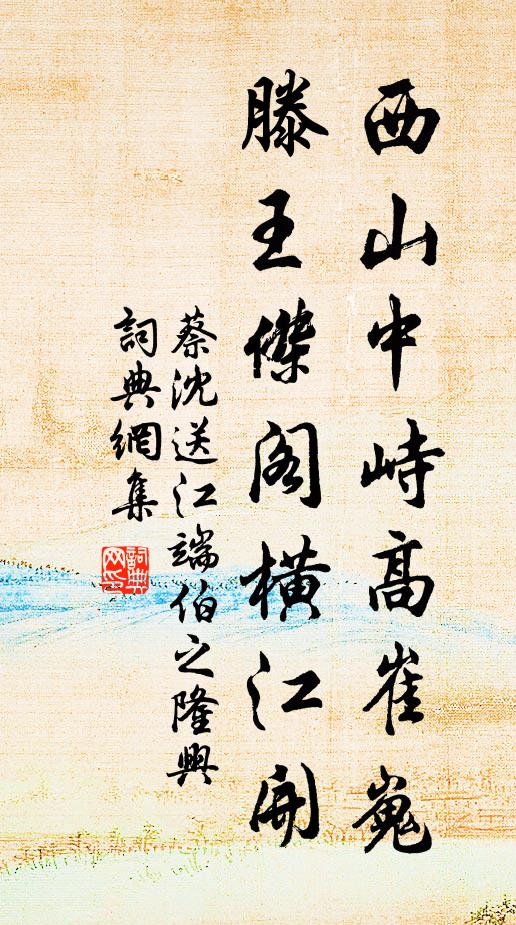 西山中峙高崔嵬
滕王傑阁橫江開
蔡沈送江端伯之隆興
詞典網集
詞典网印